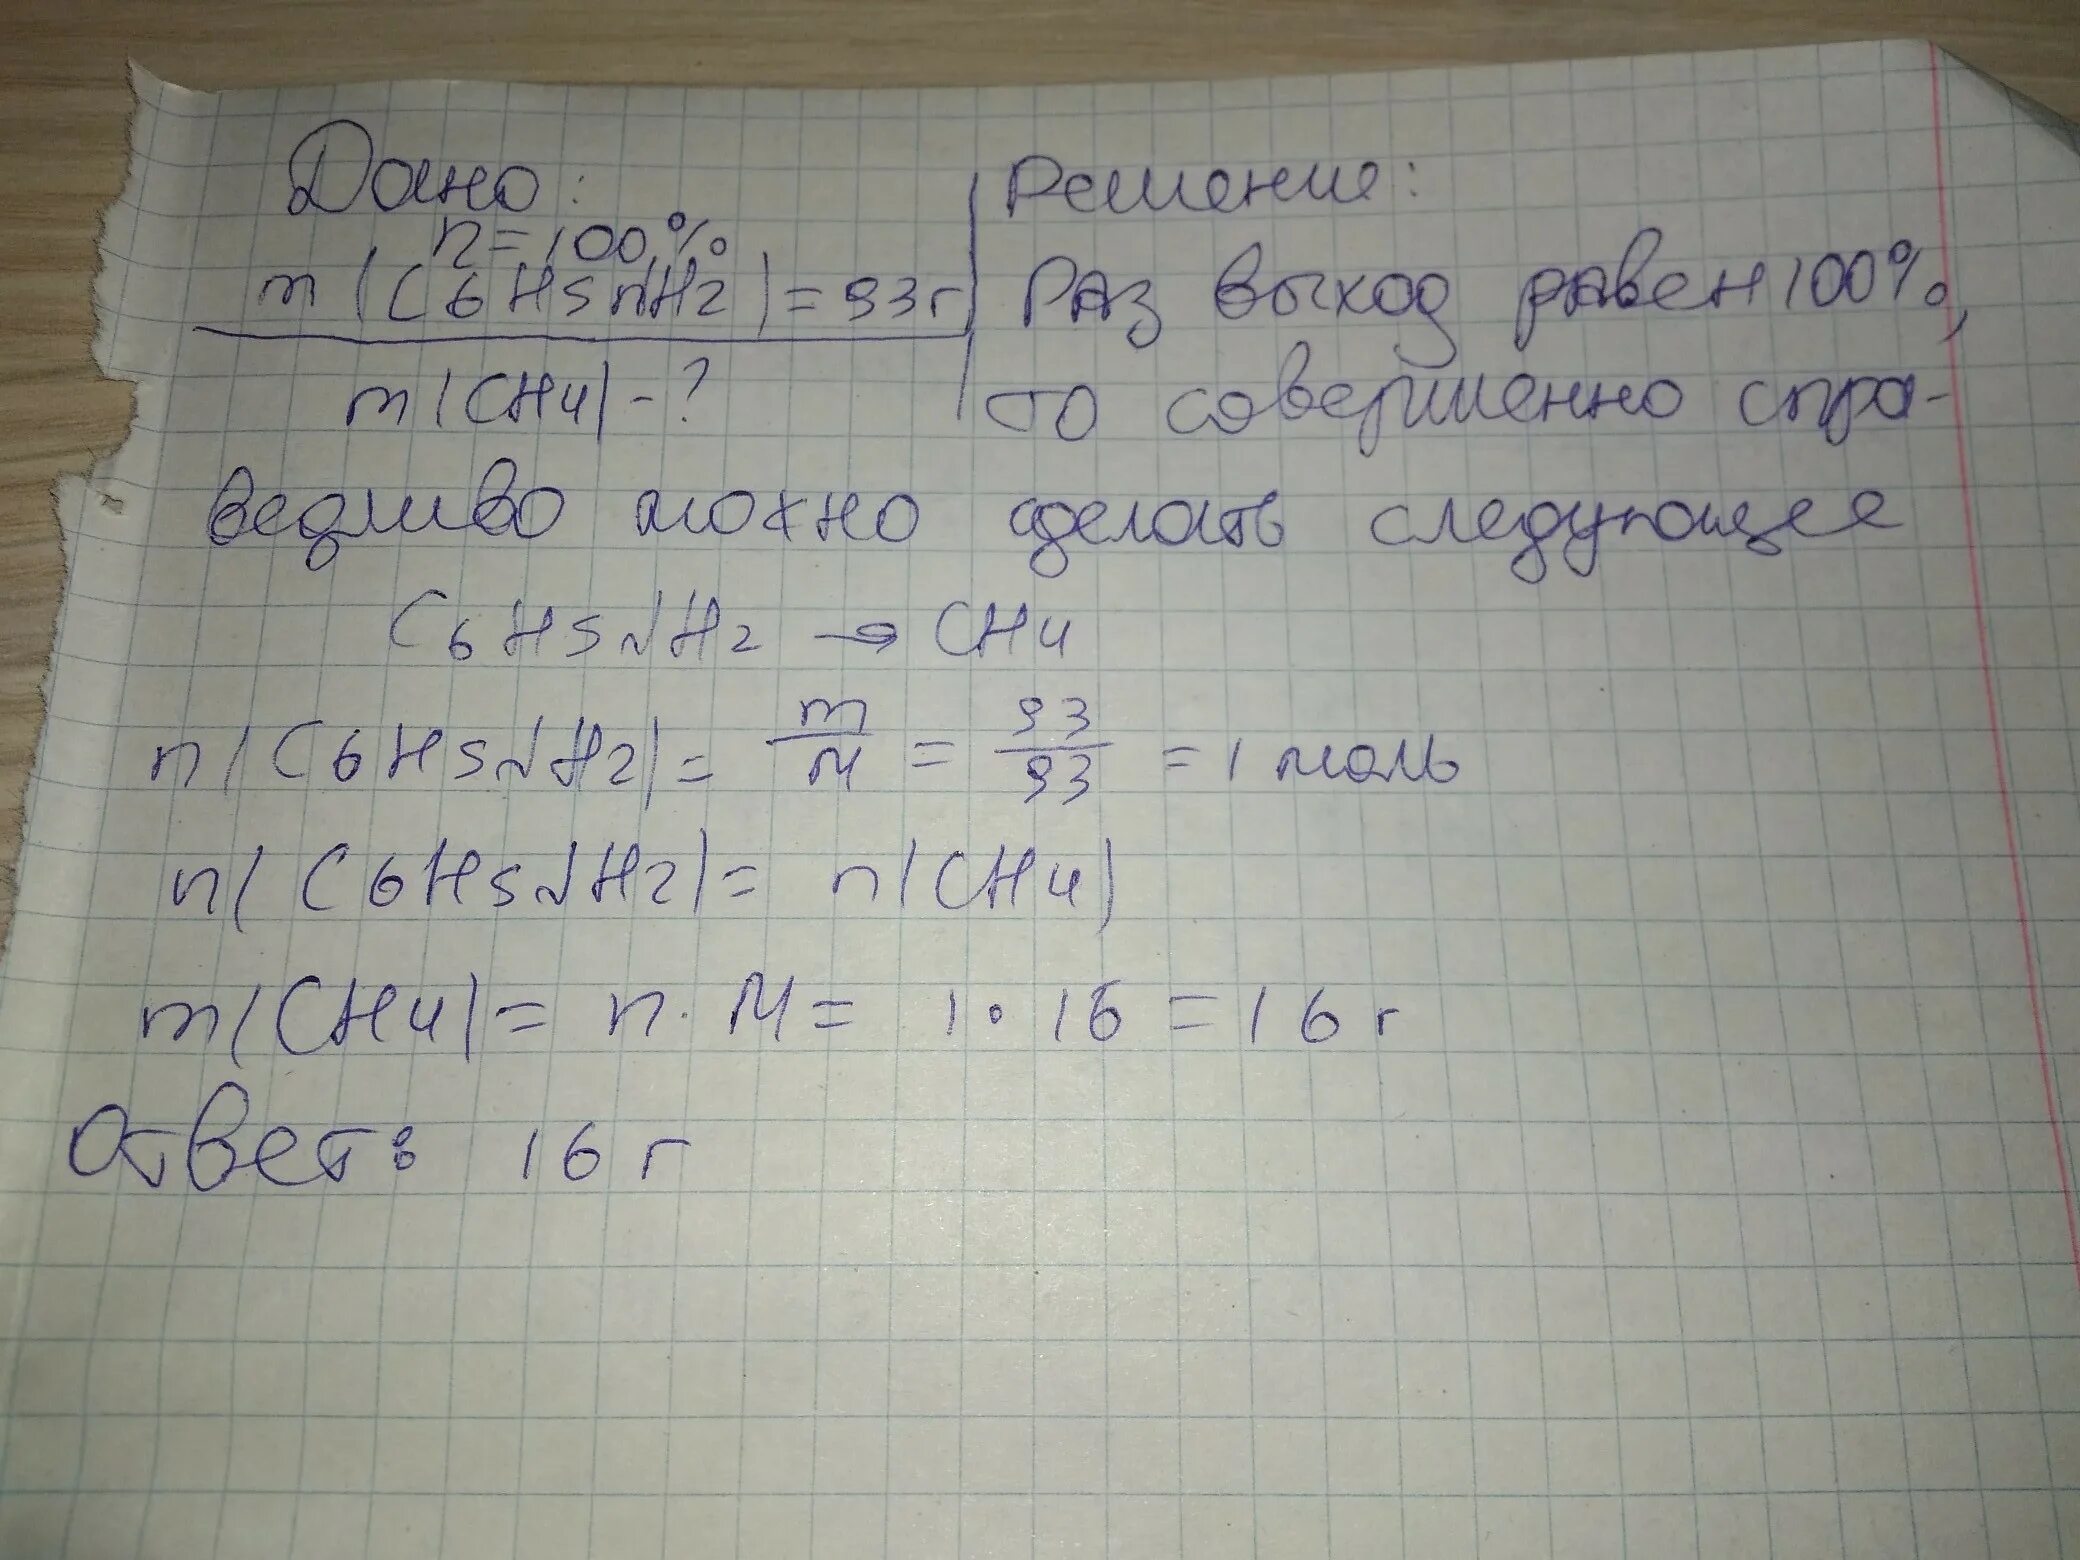 Дано:
n=100%
m(C6H5NH2)=93г
m(CH4)-?
Решение:
Раз выход равен 100%,
то совершенно спра-
ведливо можно сделать следующее
C6H5NH2 → CH4
n(C6H5NH2)= m/M = 93/93 = 1 моль
n(C6H5NH2)= n(CH4)
m(CH4)= n·M= 1·16=16 г
Ответ: 16 г